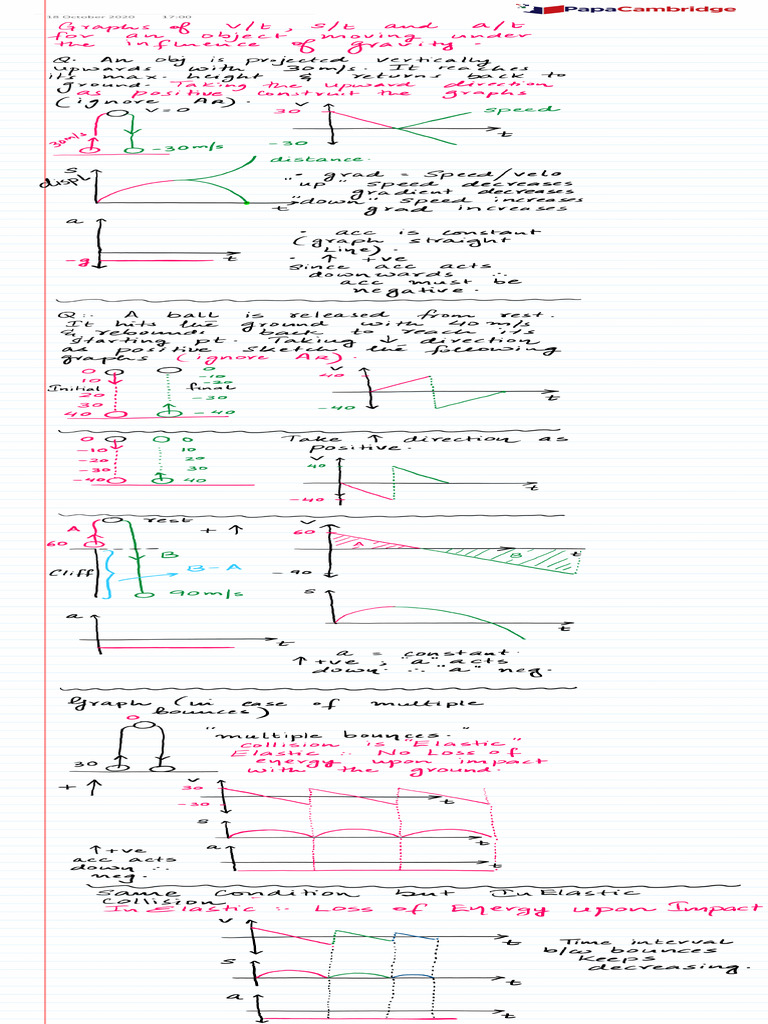 18 October 2020 17:00
PapaCambridge
Graphs of v/t, s/t and a/t
for an object moving under
the influence of gravity.
Q. An obj is projected vertically
upwards with 30m/s. It reaches
its max. height & returns back to
ground. Taking the upward direction
as positive construct the graphs
(ignore AR).
V=0
30m/s
-30m/s
V
30
-30
speed
t
distance.
S
displ
t
- grad = Speed/velo
"up" speed decreases
gradient decreases
"down" speed increases
grad increases
a
-g
t
- acc is constant
(graph straight
Line).
- ↑ +ve
since acc acts
downwards ∴
acc must be
negative.
Q:- A ball is released from rest.
It hits the ground with 40m/s
& rebounds back to reach its
starting pt. Taking ↓ direction
as positive sketch the following
graphs (ignore AR).
0
10
20
30
40
Initial
0
-10
-20
-30
-40
final
V
40
-40
t
0
-10
-20
-30
-40
0
10
20
30
40
Take ↑ direction as
positive.
V
40
-40
t
A
rest
+ ↑
60
B
B-A
Cliff
90m/s
V
60
A
B
t
-90
S
t
a
t
a = constant.
↑ +ve, "a" acts
down ∴ "a" neg.
Graph (in case of multiple
bounces)
0
30
"multiple bounces."
collision is "Elastic"
Elastic :- No Loss of
energy upon impact
with the ground.
+ ↑
V
30
-30
t
S
t
a
t
↑ +ve
acc acts
down ∴
neg.
Same condition but InElastic
Collision
InElastic :- Loss of Energy upon Impact
V
t
S
t
a
t
Time interval
b/w bounces
keeps
decreasing.